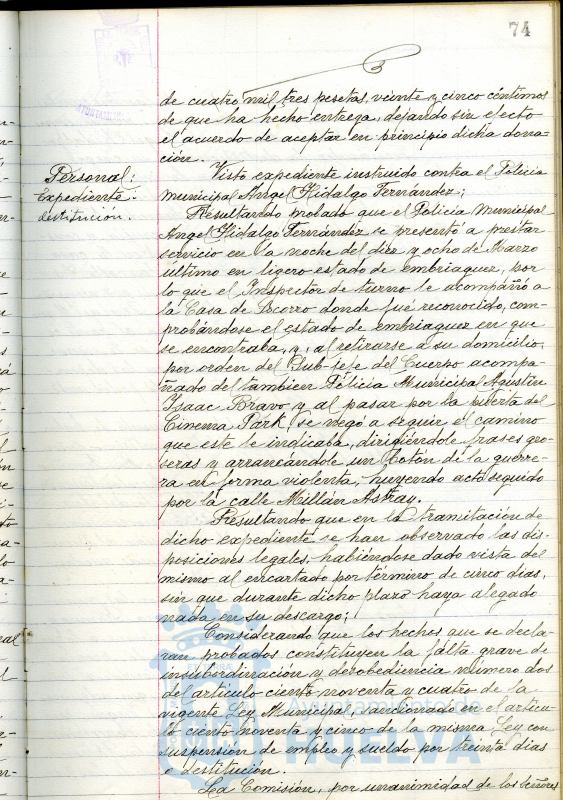 74
de cuatro mil tres pesetas, veinte y cinco céntimos
de que ha hecho entrega, dejando sin efecto
el acuerdo de aceptar en principio dicha dona-
ción.
Personal:
Expediente.
destitución.
Visto expediente instruido contra el Policia
Municipal Angel Hidalgo Fernández;
Resultando probado que el Policia Municipal
Angel Hidalgo Fernández se presentó a prestar
servicio en la noche del diez y ocho de Marzo
último en ligero estado de embriaguez, por
lo que el Inspector de turno le acompañó a
la Casa de Socorro donde fué reconocido, com-
probándose el estado de embriaguez en que
se encontraba, y, al retirarse a su domicilio,
por orden del Sub-jefe del Cuerpo acompa-
ñado del tambien Policia Municipal Agustín
Isaac Bravo y al pasar por la puerta del
Cinema Park, se negó a seguir el camino
que este le indicaba, dirigiéndole frases gro-
seras y arrancándole un botón de la guerre-
ra en forma violenta, huyendo acto seguido
por la calle Millán Astray.
Resultando que en la tramitación de
dicho expediente se han observado las dis-
posiciones legales, habiéndose dado vista del
mismo al encartado por término de cinco dias,
sin que durante dicho plazo haya alegado
nada en su descargo;
Considerando que los hechos que se decla-
ran probados constituyen la falta grave de
insubordinación y desobediencia número dos
del artículo ciento noventa y cuatro de la
vigente Ley Municipal, sancionado en el artícu-
lo ciento noventa y cinco de la misma Ley con
suspensión de empleo y sueldo por treinta dias
o destitución.
La Comisión, por unanimidad de los señores
HUELVA